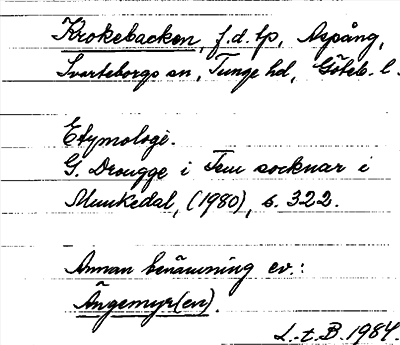 Krokebacken, f.d. tp, Aspång,
Svarteborgs sn, Tunge hd, Göteb. l.
Etymologi.
G. Drougge i Fem socknar i
Munkedal, (1980), s. 322.
Annan benämning ev.:
Ängemyr(en).
L.-t. B. 1984.